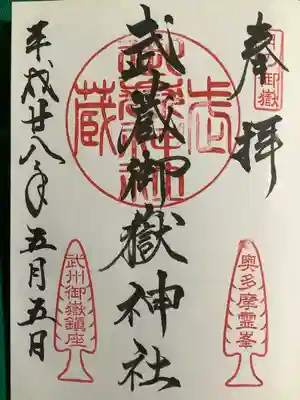 奉拝
武蔵御嶽神社
平成廿八年五月五日
奥多摩霊峯
武州御嶽鎮座